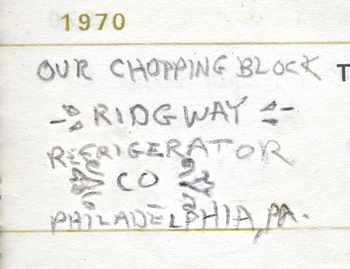 1970
OUR CHOPPING BLOCK T
RIDGWAY
REFRIGERATOR
CO
PHILADELPHIA, PA.